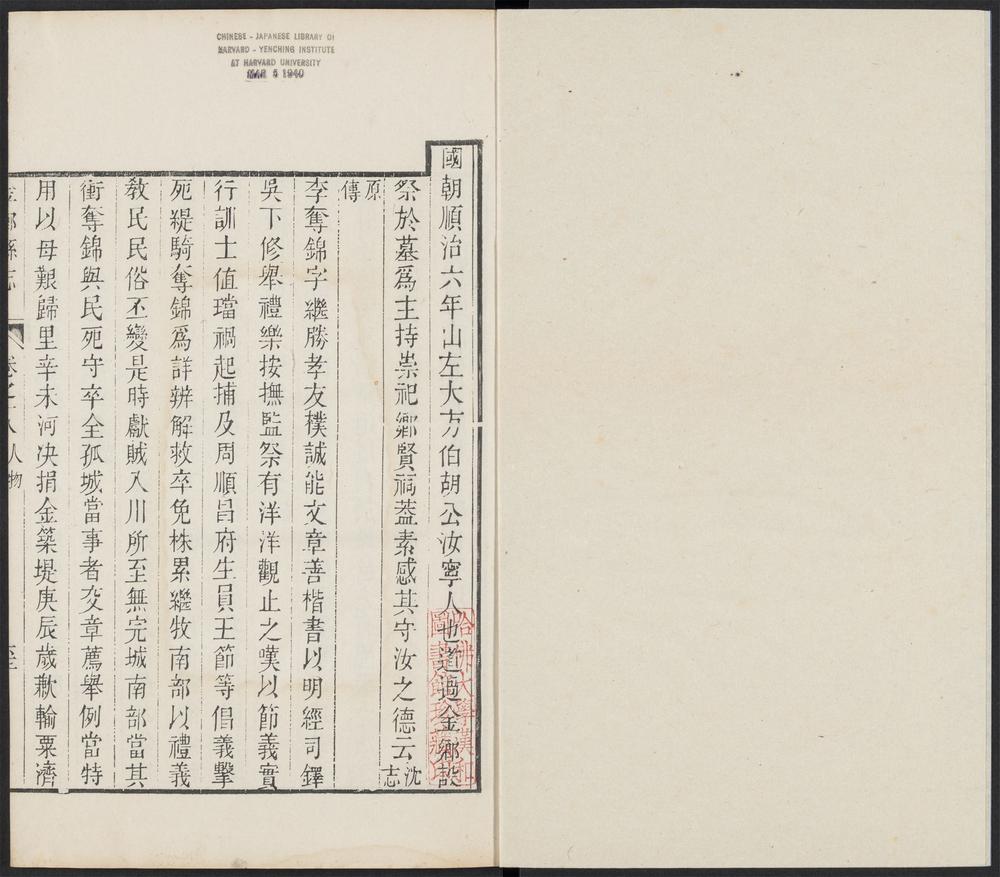 CHINESE - JAPANESE LIBRARY OF
HARVARD - YENCHING INSTITUTE
AT HARVARD UNIVERSITY
MAR 5 1940
國朝順治六年山左大方伯胡公汝寧人也道過金鄉設
祭於墓爲主持崇祀鄉賢祠葢素感其守汝之德云沈志
原傳
李奪錦字繼勝孝友樸誠能文章善楷書以明經司鐸
吳下修舉禮樂按撫監祭有洋洋觀止之嘆以節義實
行訓士值璫禍起捕及周順昌府生員王節等倡義擊
死緹騎奪錦爲詳辨解救卒免株累繼牧南部以禮義
敎民民俗丕變是時獻賊入川所至無完城南部當其
衝奪錦與民死守卒全孤城當事者交章薦舉例當特
用以母艱歸里辛未河決捐金築堤庚辰歲歉輸粟濟
金鄉縣志
卷之
人物
哈佛大學漢和圖書館珍藏印